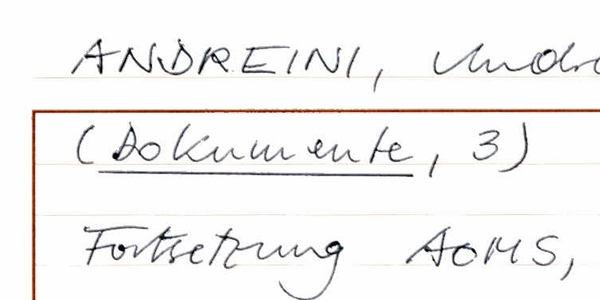 ANDREINI,
(Dokumente, 3)
Fortsetzung AOMS,